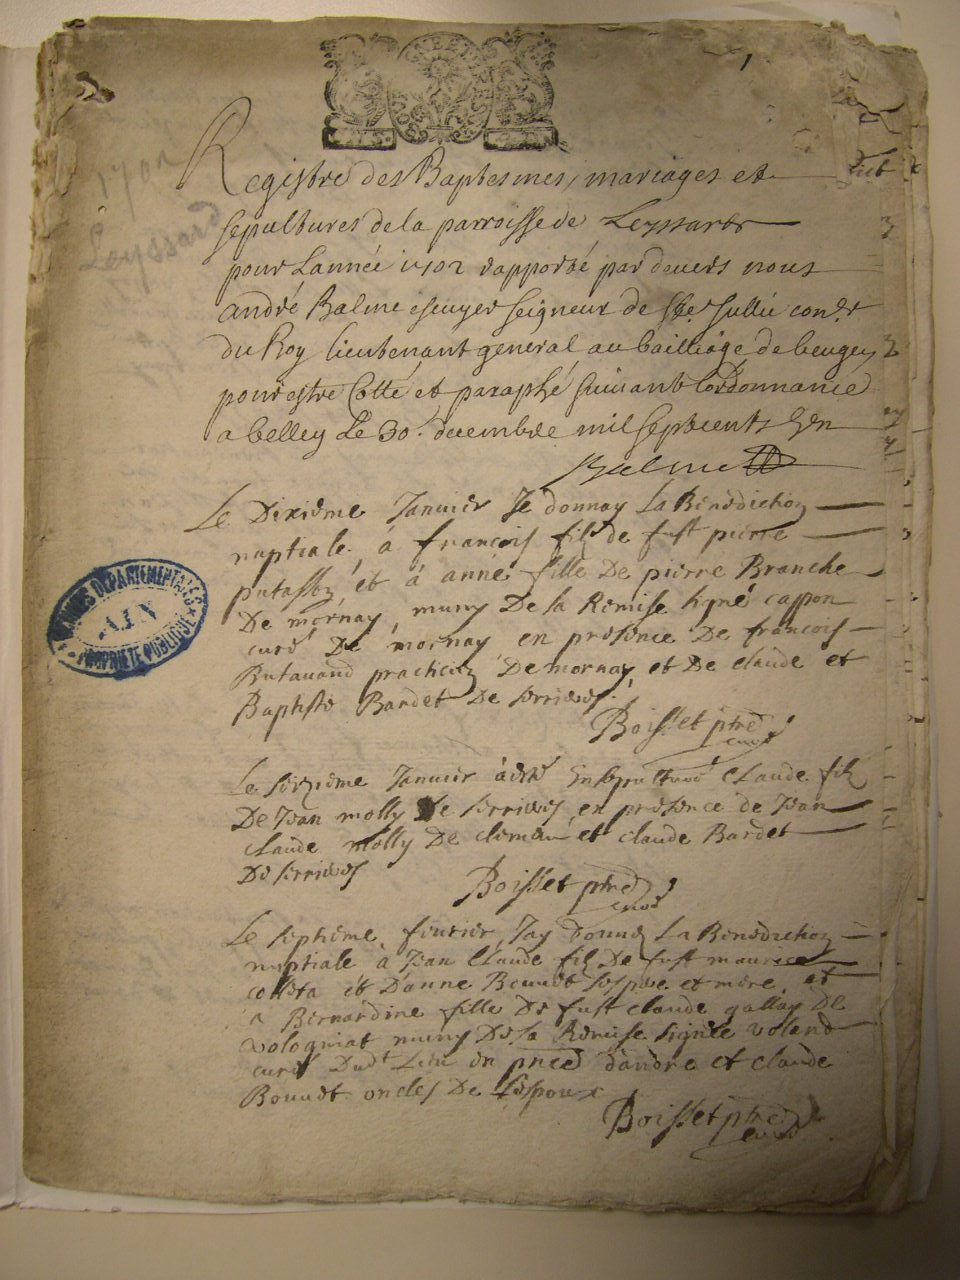 1
Registre des Baptesmes, mariages et
sepultures de la parroisse de Leyssard
pour Lannée 1702 rapporté par devers nous
andré Balme escuyer seigneur de Ste Jullie conler
du Roy lieutenant general au bailliage de beugey
pour estre Cotté et paraphé suivant lordonnance
a belley Le 30e decembre mil sept cents un
Balme
1702
Leyssard
Le Dixième Janvier Je donnay La Benediction
nuptiale à francois fils de fust pierre
putasson et à anne fille De pierre Branche
De mornay, muny De la Remise signé cappon
curé De mornay en presence De francois
Butavand praticien De mornay, et De claude et
Baptiste Bardet De serrieres.
Boisset ptre
curé
Le seizième Janvier à esté Ensepulturé Claude fils
De Jean molly De serrieres, en presence de Jean
claude molly De et claude Bardet
De serrieres
Boisset ptre
curé
Le septième fevrier Jay donné La Benediction
nuptiale à Jean Claude fils De fust maurice
colleta et Danne Bouvet ses pere et mere, et
a Bernardine fille De fust claude gallay De
vologniat muny De la Remise signée volend
curé Dudt Lieu en pnce dandre et claude
Bouvet oncles De Lespoux
Boisset ptre
curé
ARCHIVES DÉPARTEMENTALES
AIN
PROPRIÉTÉ PUBLIQUE